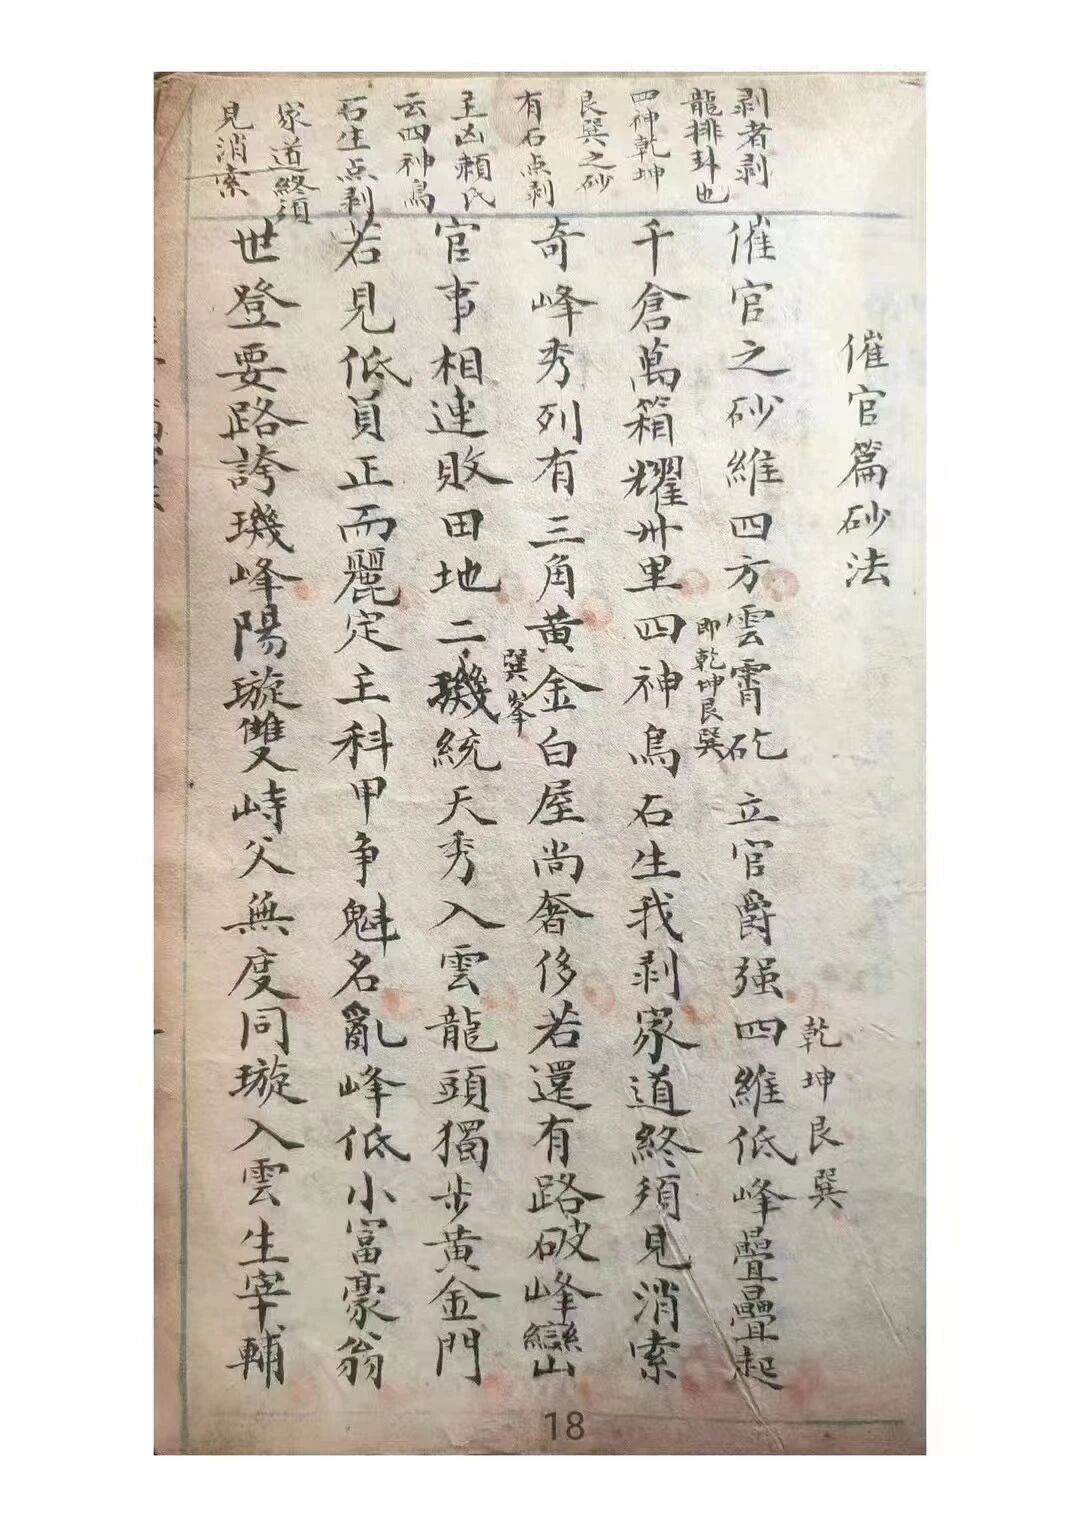 剥者剥
龍排卦也
四神乾坤
艮巽之砂
有石点剥
主凶賴氏
云四神鳥
石生点剥
家道終須
見消索
催官篇砂法
催官之砂維四方雲霄矻立官爵强四維低峰疊疊起
乾坤艮巽
千倉萬箱耀卅里四神鳥石生我剥家道終須見消索
即乾坤艮巽
奇峰秀列有三角黄金白屋尚奢侈若還有路破峰巒
官事相連敗田地二璣統天秀入雲龍頭獨步黄金門
巽峯
若見低員正而麗定主科甲争魁名亂峰低小富豪翁
世登要路誇璣峰陽璇雙峙父無度同璇入雲生宰輔
18